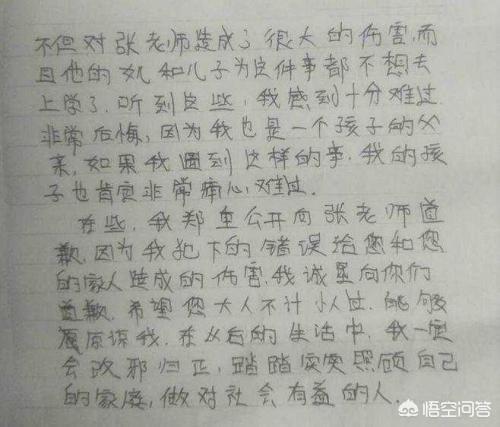 不但对张老师造成了很大的伤害,而
且他的女儿和儿子为这件事都不想去
上学了.听到这些,我感到十分难过
非常后悔,因为我也是一个孩子的父
亲,如果我遇到这样的事.我的孩
子也肯定非常痛心,难过.
在些,我郑重公开向张老师道
歉,因为我犯下的错误给您和您
的家人造成的伤害,我诚恳向你们
道歉.希望您大人不计小人过.能够
原谅我.在以后的生活中,我一定
会改邪归正,踏踏实实照顾自己
的家庭,做对社会有益的人.
悟空问答